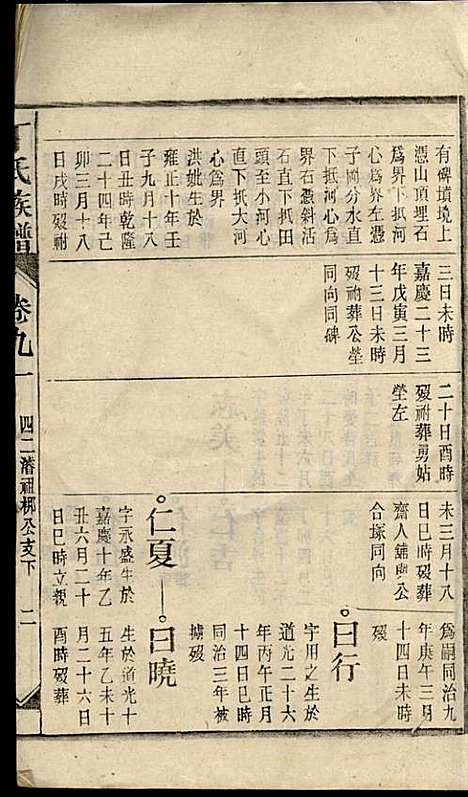 有碑墳境上
憑山頂埋石
爲界下抵河
心爲界左憑
子岡分水直
下抵河心爲
界右憑斜活
石直下抵田
頭至小河心
直下抵大河
心爲界
洪妣生於
雍正十年壬
子九月十八
日丑時乾隆
二十四年己
卯三月十八
日戌時歿祔
三日未時
嘉慶二十三
年戊寅三月
十三日未時
歿祔葬公塋
同向同碑
二十日酉時
歿祔葬勇姑
塋左
未三月十八
日巳時歿葬
齋人鋪與公
合塚同向
爲嗣同治九
年庚午三月
十四日未時
歿
曰行
字用之生於
道光二十六
年丙午正月
十四日巳時
同治三年被
擄歿
仁夏
字永盛生於
嘉慶十年乙
丑六月二十
日巳時立親
曰曉
生於道光十
五年乙未十
月二十六日
酉時歿葬
丁氏族譜
卷九
四二潽祖梆公支下
二